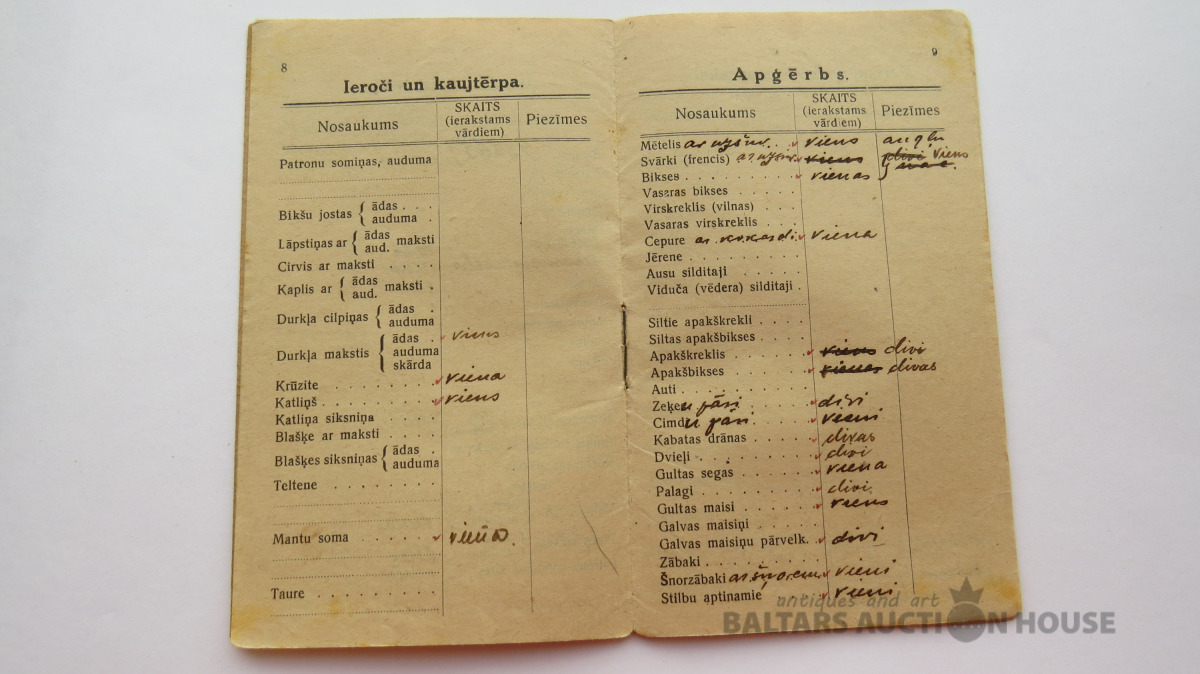 8
Ieroči un kaujtērpa.
Nosaukums SKAITS (ierakstams vārdiem) Piezīmes
Patronu somiņas, auduma
Bikšu jostas { ādas . . .
auduma .
Lāpstiņas ar { ādas maksti
aud.
Cirvis ar maksti . . . .
Kaplis ar { ādas maksti .
aud.
Durkļa cilpiņas { ādas .
auduma
Durkļa makstis { ādas . viens
auduma
skārda
Krūzite . . . . . . . viena
Katliņš . . . . . . . viens
Katliņa siksniņa . . . .
Blašķe ar maksti . . . .
Blašķes siksniņas { ādas .
auduma
Teltene . . . . . . .
Mantu soma . . . . . viena
Taure . . . . . . . .
9
Apģērbs.
Nosaukums SKAITS (ierakstams vārdiem) Piezīmes
Mētelis ar viens angļu
Svārki (frencis) viens divi viens
Bikses . . . . . . . vienas
Vasaras bikses . . . .
Virskreklis (vilnas) . . .
Vasaras virskreklis . . .
Cepure ar kokardi . viena
Jērene . . . . . . .
Ausu silditaji . . . . .
Viduča (vēdera) silditaji .
Siltie apakškrekli . . . .
Siltas apakšbikses . . . .
Apakškreklis . . . . . viens divi
Apakšbikses . . . . . vienas divas
Auti . . . . . . . .
Zeķeu pāri . . . . divi
Cimdu pāri . . . . vieni
Kabatas drānas . . . . divas
Dvieļi . . . . . . . divi
Gultas segas . . . . . viena
Palagi . . . . . . . divi
Gultas maisi . . . . . viens
Galvas maisiņi . . . .
Galvas maisiņu pārvelk. . divi
Zābaki . . . . . . .
Šnorzābaki ar šnorēm vieni
Stilbu aptinamie vieni
antiques and art
BALTARS AUCTION HOUSE